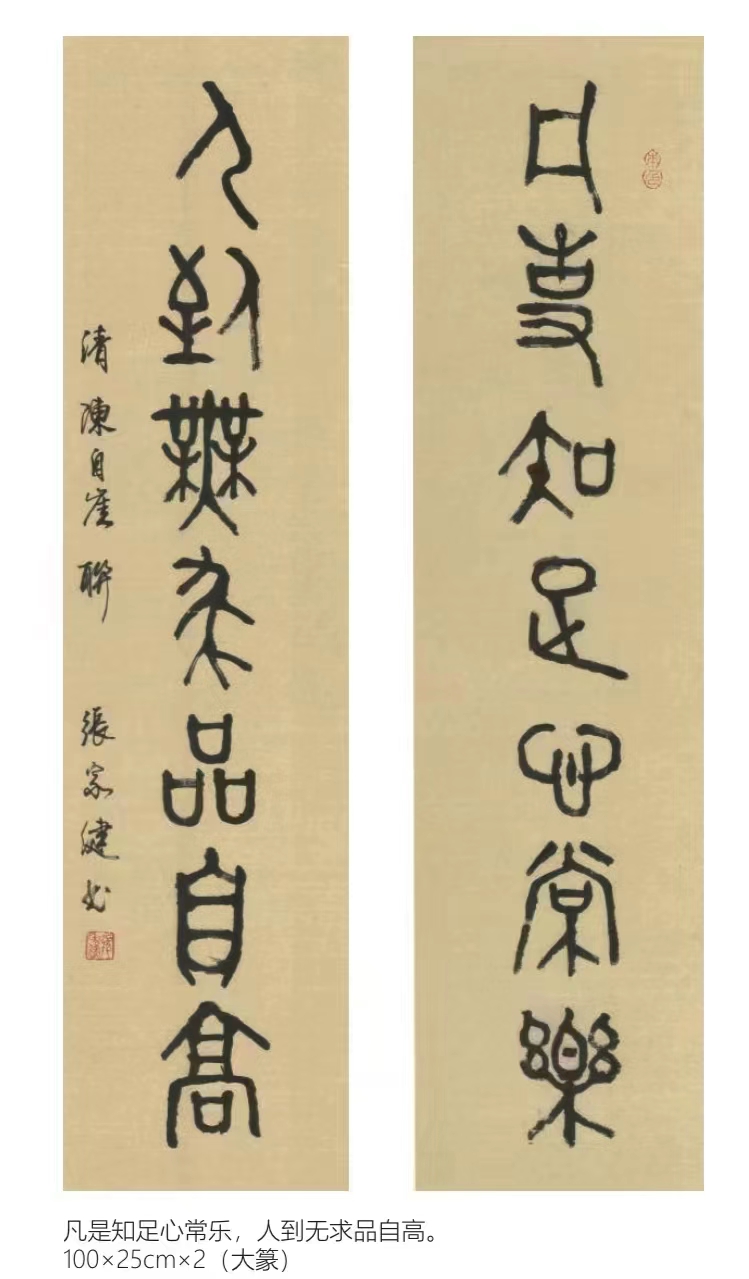 凡事知足心常樂
人到無求品自高
清 陳自崖 聯 張家健书
凡是知足心常乐，人到无求品自高。
100×25cm×2（大篆）